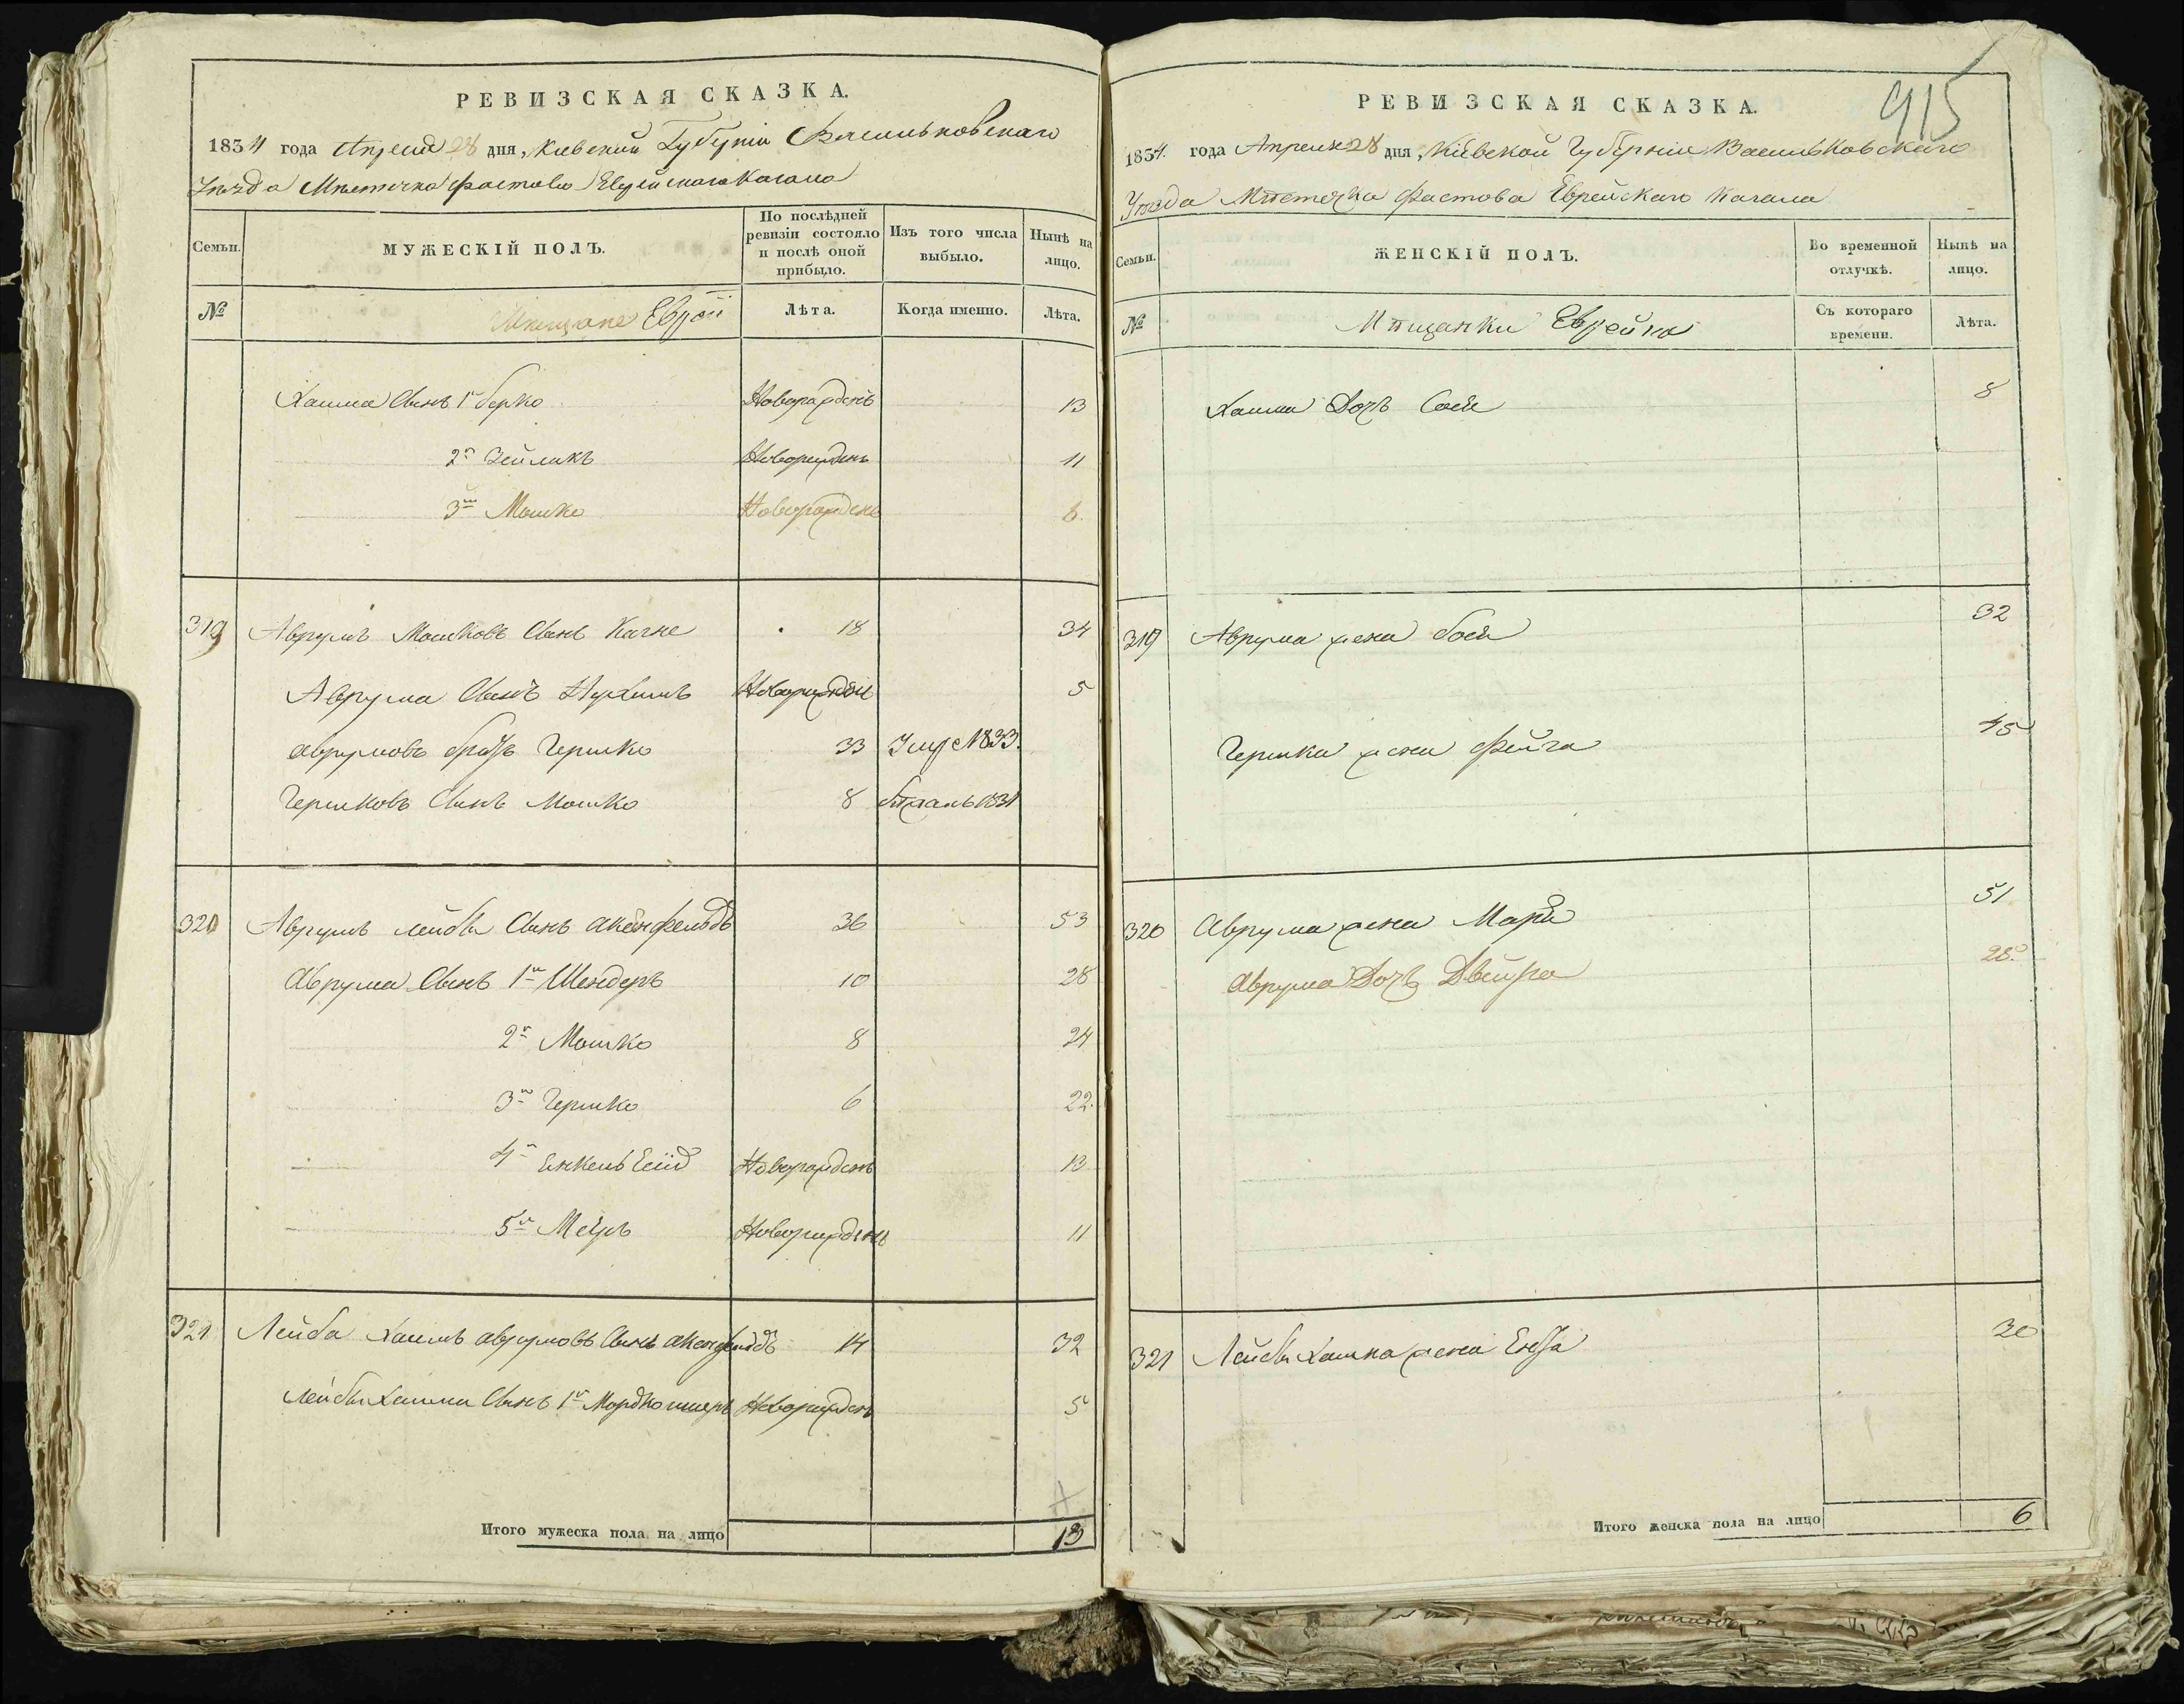 РЕВИЗСКАЯ СКАЗКА.
1834 года Апреля 28 дня, Киевской Губернии Васильковскаго
Уезда Местечка Фастова Еврейскаго Кагала
Семьи.
МУЖЕСКІЙ ПОЛЪ.
По послѣдней ревизіи состояло и послѣ оной прибыло.
Изъ того числа выбыло.
Нынѣ на лицо.
№
Мещане Евреи
Лѣта.
Когда именно.
Лѣта.
Хаима Сынъ 1й Берко Новорожденъ 13
2й Зейликъ Новорожденъ 11
3й Мошко Новорожденъ 8
319 Аврумъ Мошковъ Сынъ 18 34
Аврума Сынъ Нухимъ Новорожденъ 5
Аврумовъ братъ Гершко 33 Умре 1833
Гершковъ Сынъ Мошко 8 1831
320 Аврумъ Лейбы Сынъ Аксенфельдъ 36 53
Аврума Сынъ 1й Шендеръ 10 28
2й Мошко 8 24
3й Гершко 6 22
4й Новорожденъ 13
5й Мееръ Новорожденъ 11
321 Лейба Хаимъ Аврумовъ Сынъ Аксенфельдъ 14 32
Лейбы Хаима Сынъ 1й Мордко Новорожденъ 5
Итого мужеска пола на лицо 13
915
РЕВИЗСКАЯ СКАЗКА.
1834 года Апреля 28 дня, Кіевской Губерніи Васильковскаго
Уѣзда Мѣстечка Фастова Еврейскаго Кагала
Семьи.
ЖЕНСКІЙ ПОЛЪ.
Во временной отлучкѣ.
Нынѣ на лицо.
№
Мѣщанки Еврейки
Съ котораго времени.
Лѣта.
Хаима Дочь Сося 8
319 Аврума жена 32
Гершка жена Фейга 45
320 Аврума жена 51
Аврума Дочь Двейра 28
321 Лейбы Хаима жена Ента 30
Итого женска пола на лицо 6